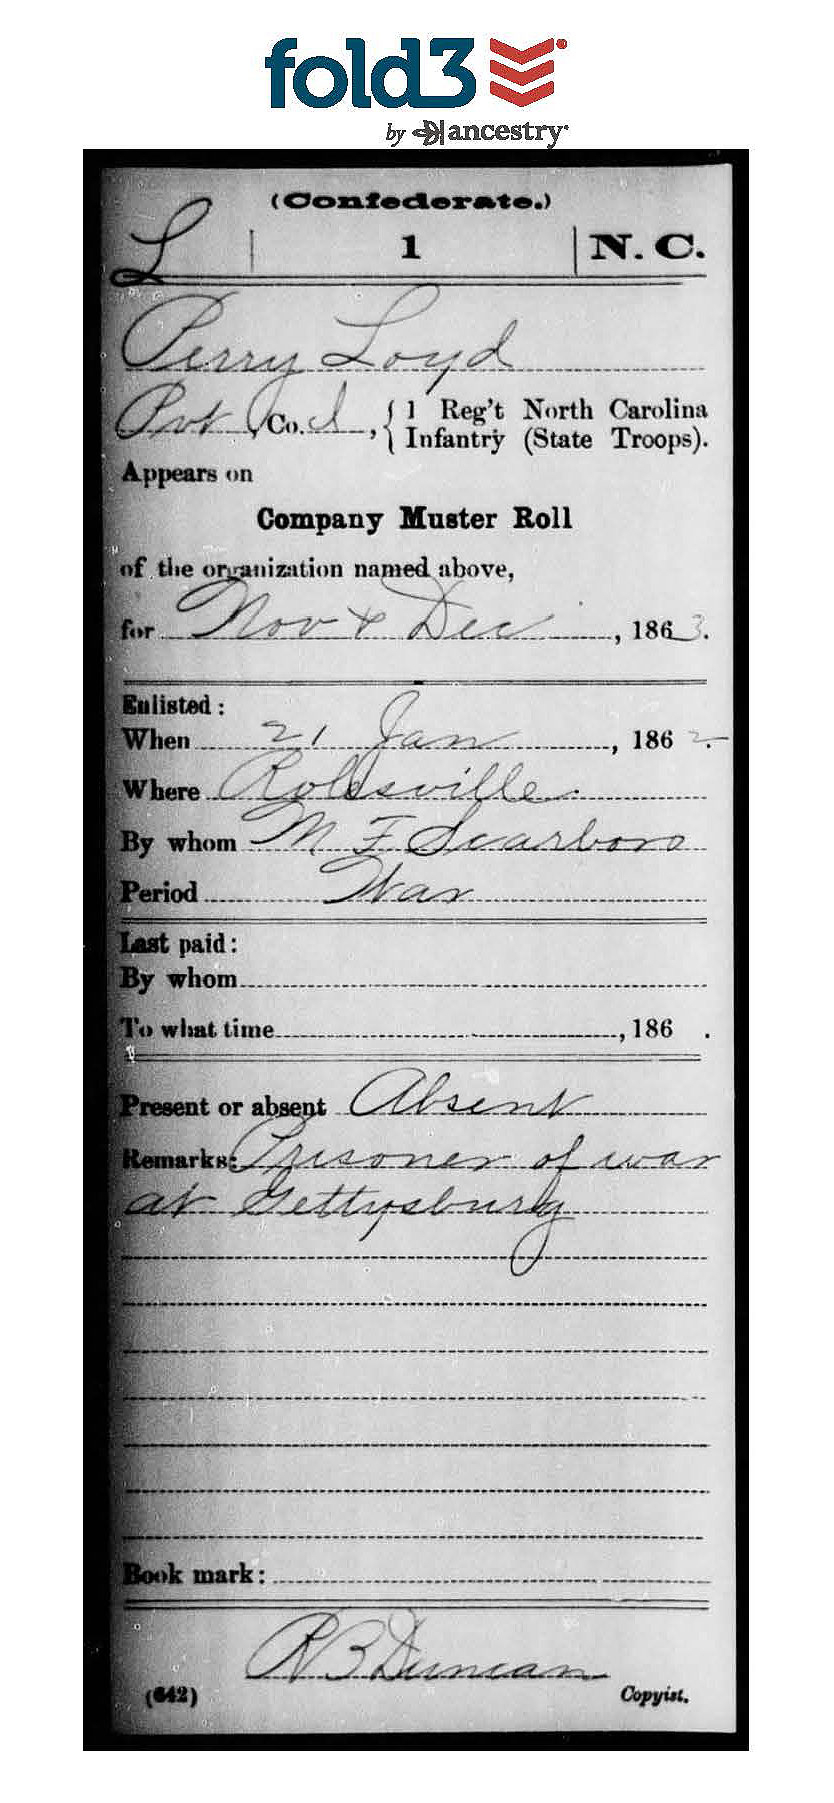 fold3
by ancestry
(Confederate.)
L | 1 | N. C.
Perry Loyd
Pvt, Co. I, { 1 Reg't North Carolina
Infantry (State Troops).
Appears on
Company Muster Roll
of the organization named above,
for Nov & Dec, 1863.
Enlisted:
When 21 Jan, 1862.
Where Rolesville.
By whom M F Scarboro
Period War
Last paid:
By whom
To what time, 186 .
Present or absent Absent
Remarks: Prisoner of war
at Gettysburg
Book mark:
R B Duncan
(642) Copyist.